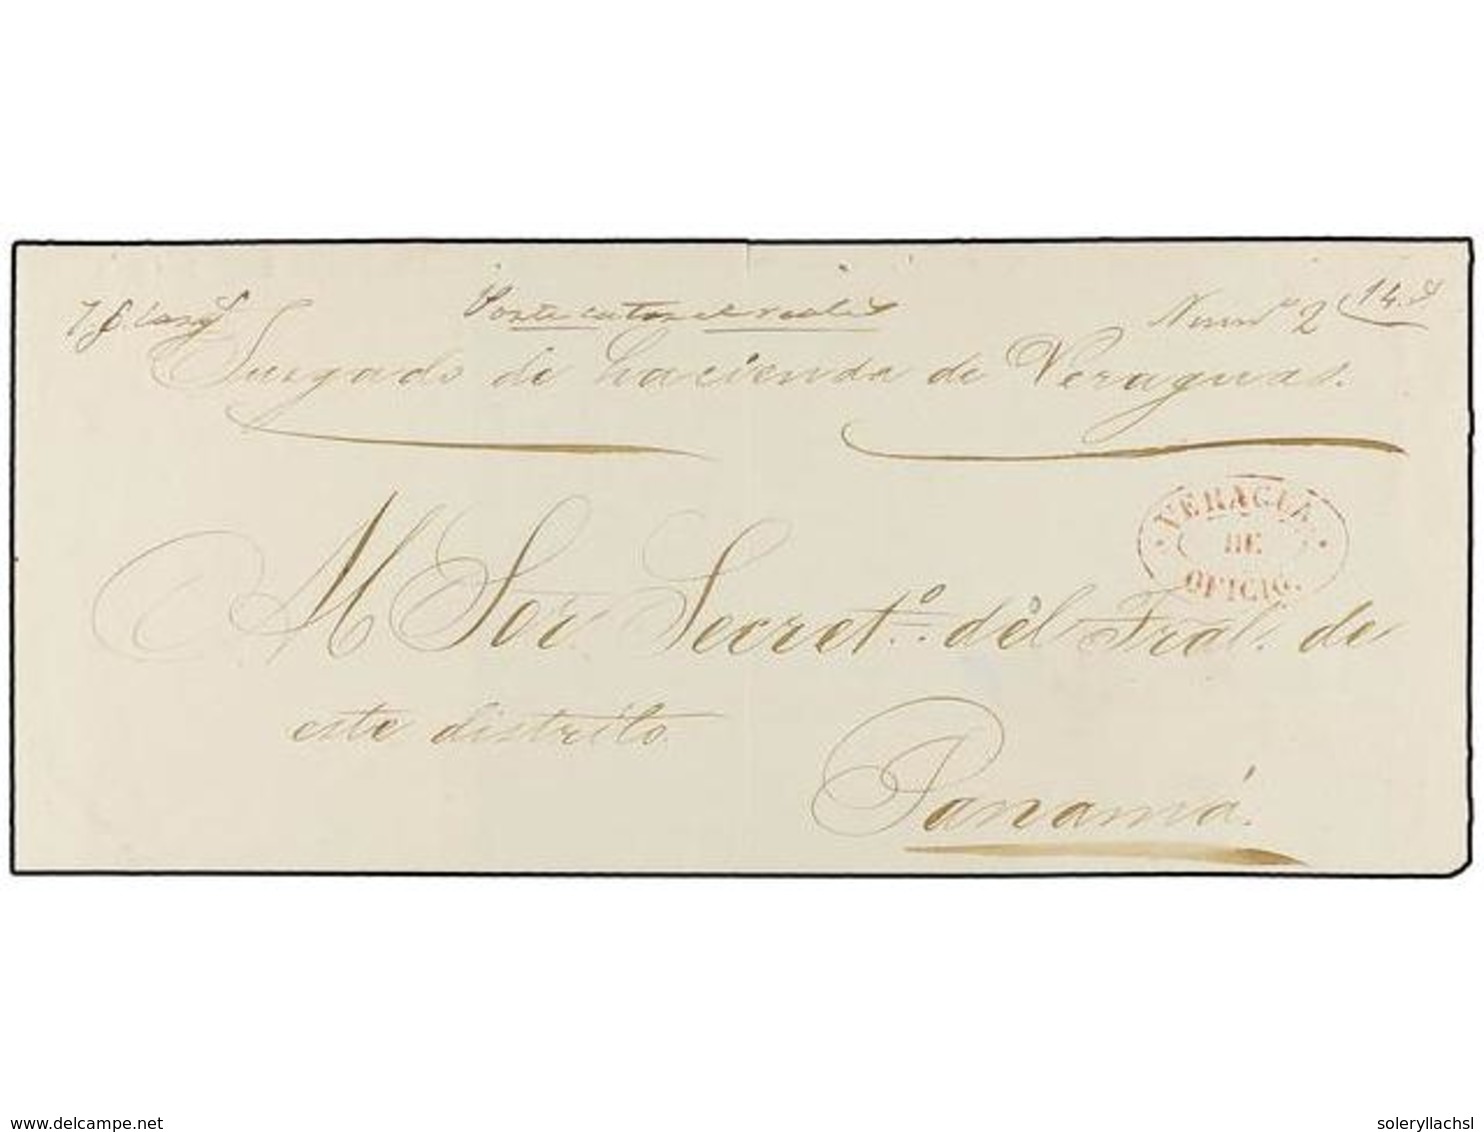 Porte catorce reales
Num.º 2 14. r
Jusgado de hacienda de Veraguas.
VERAGUA
DE
OFICIO.
Al Sor. Secret.º del Tral. de
este distrito
Panamá.
delcampe.net
soleryllachsl